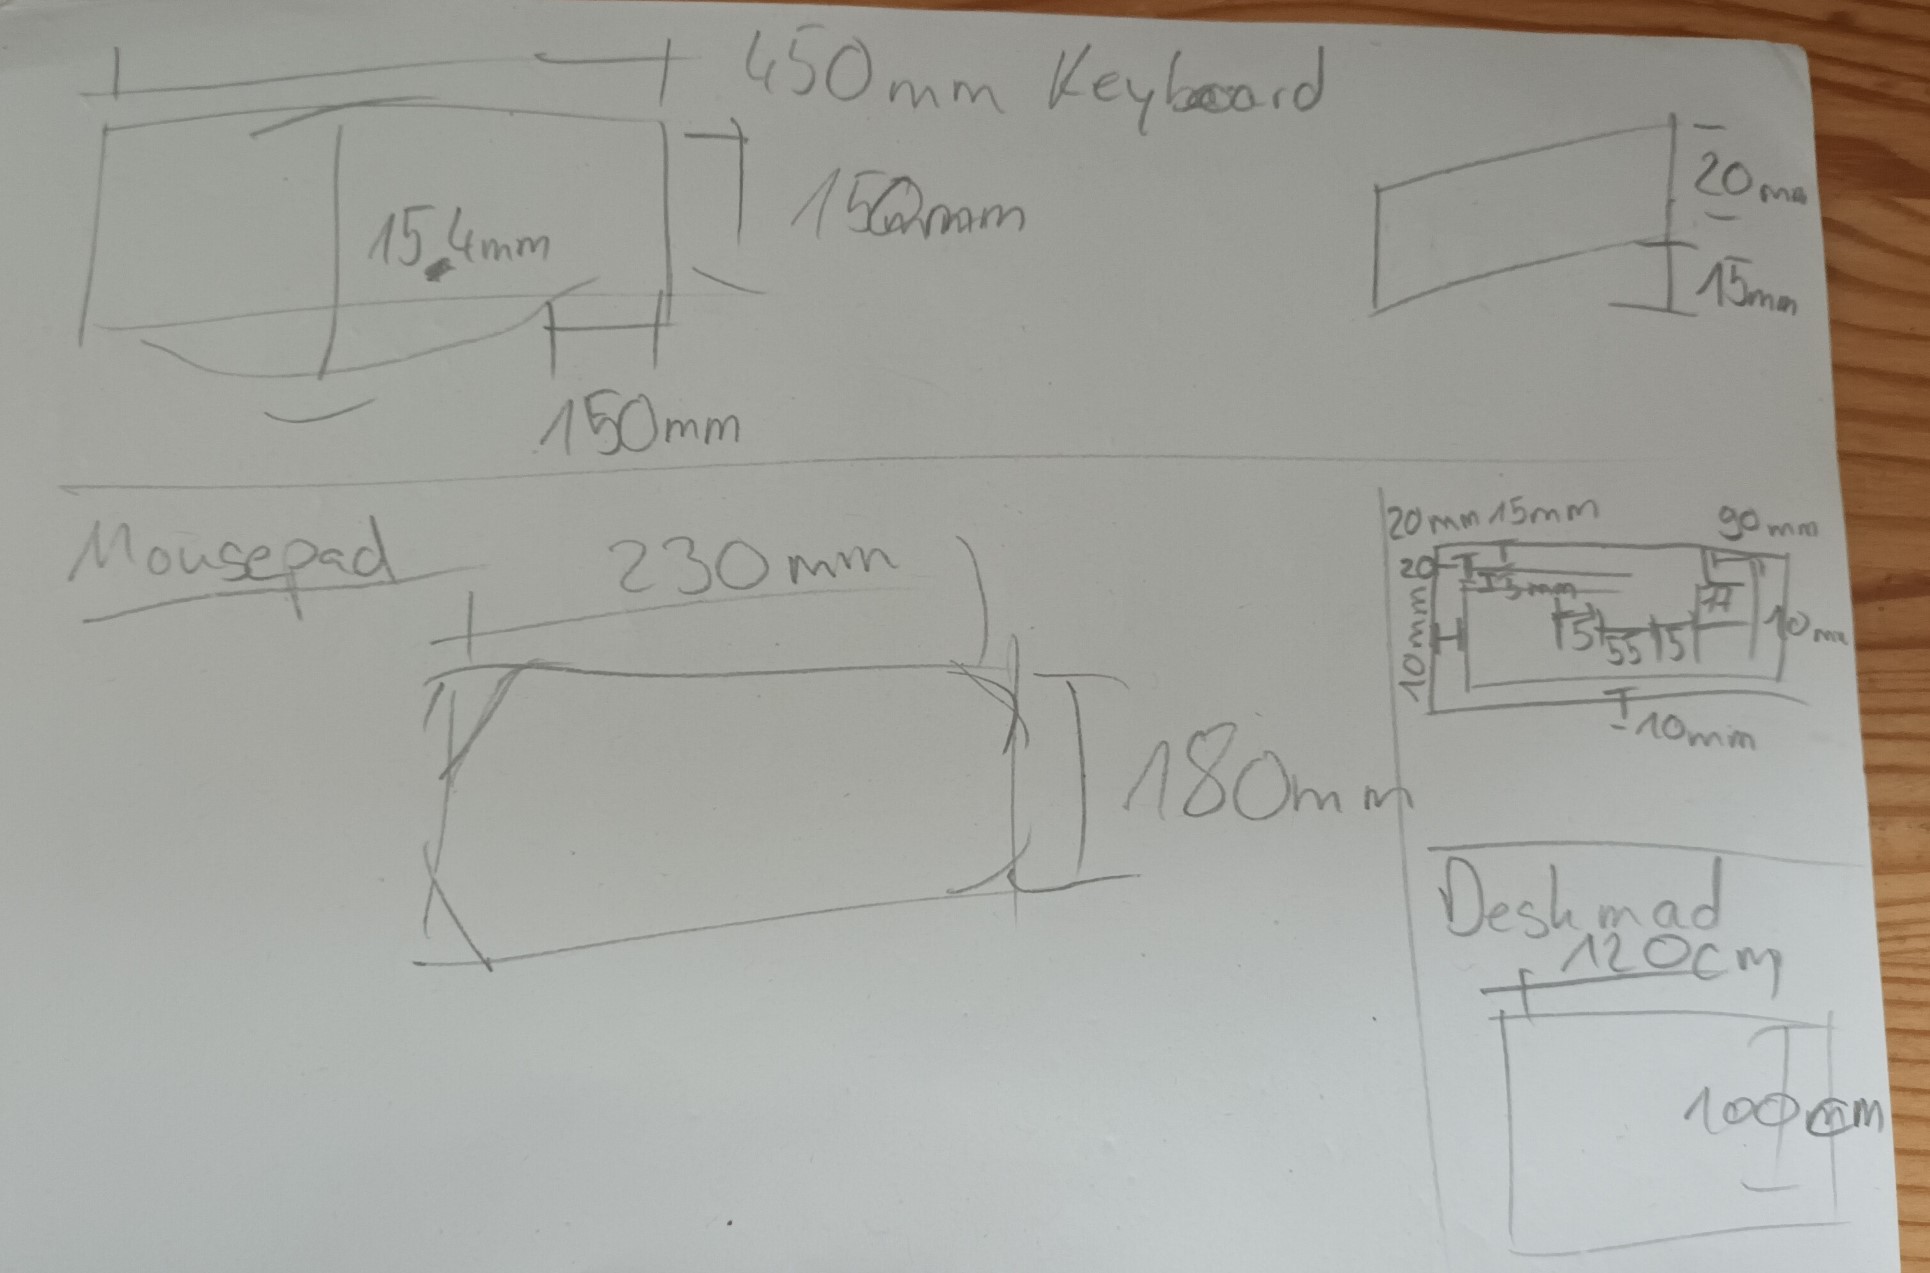 450mm Keyboard
150mm
15.4mm
150mm
20mm
15mm
Mousepad
230mm
180mm
20mm 15mm
90mm
20
5mm
10mm
15
55
15
10mm
10mm
Deskmad
120cm
100cm